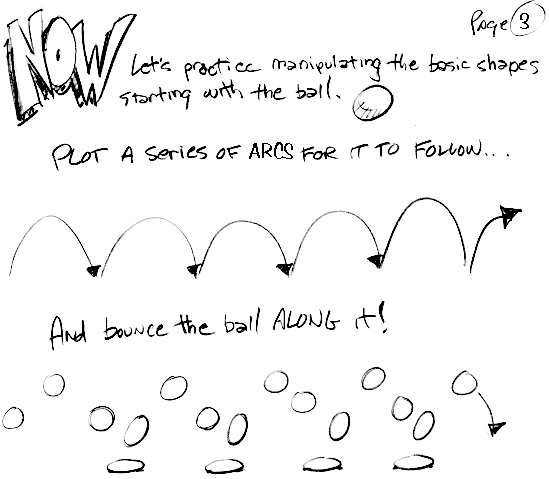 Page 3
NOW Let's practice manipulating the basic shapes
starting with the ball.
PLOT A SERIES OF ARCS FOR IT TO FOLLOW...
And bounce the ball ALONG it!